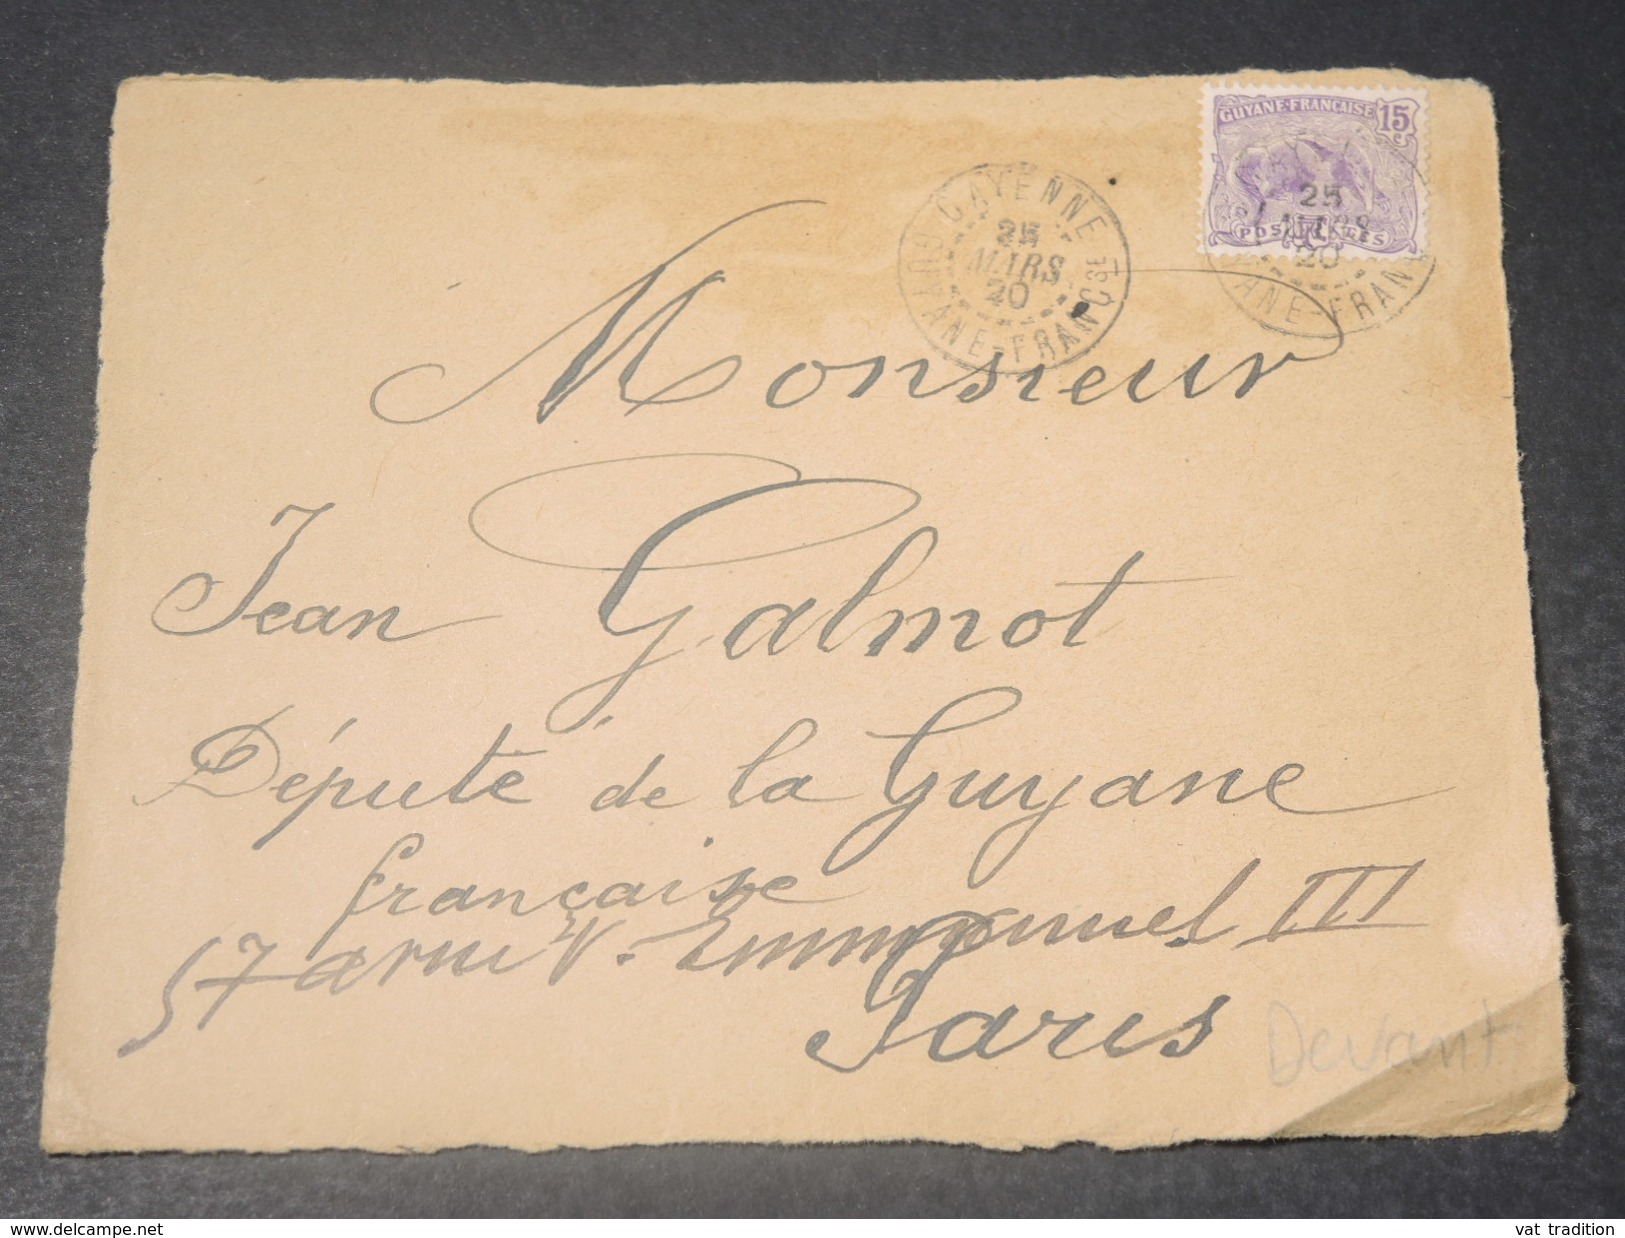 GUYANE FRANÇAISE 15 c
POSTES
CAYENNE
25
MARS
20
GUYANE-FRANÇSE
25
MARS
20
ANE-FRAN
Monsieur
Jean Galmot
Député de la Guyane
française
57 avenue V. Emmanuel III
Paris
Devant
www.delcampe.net
vat tradition